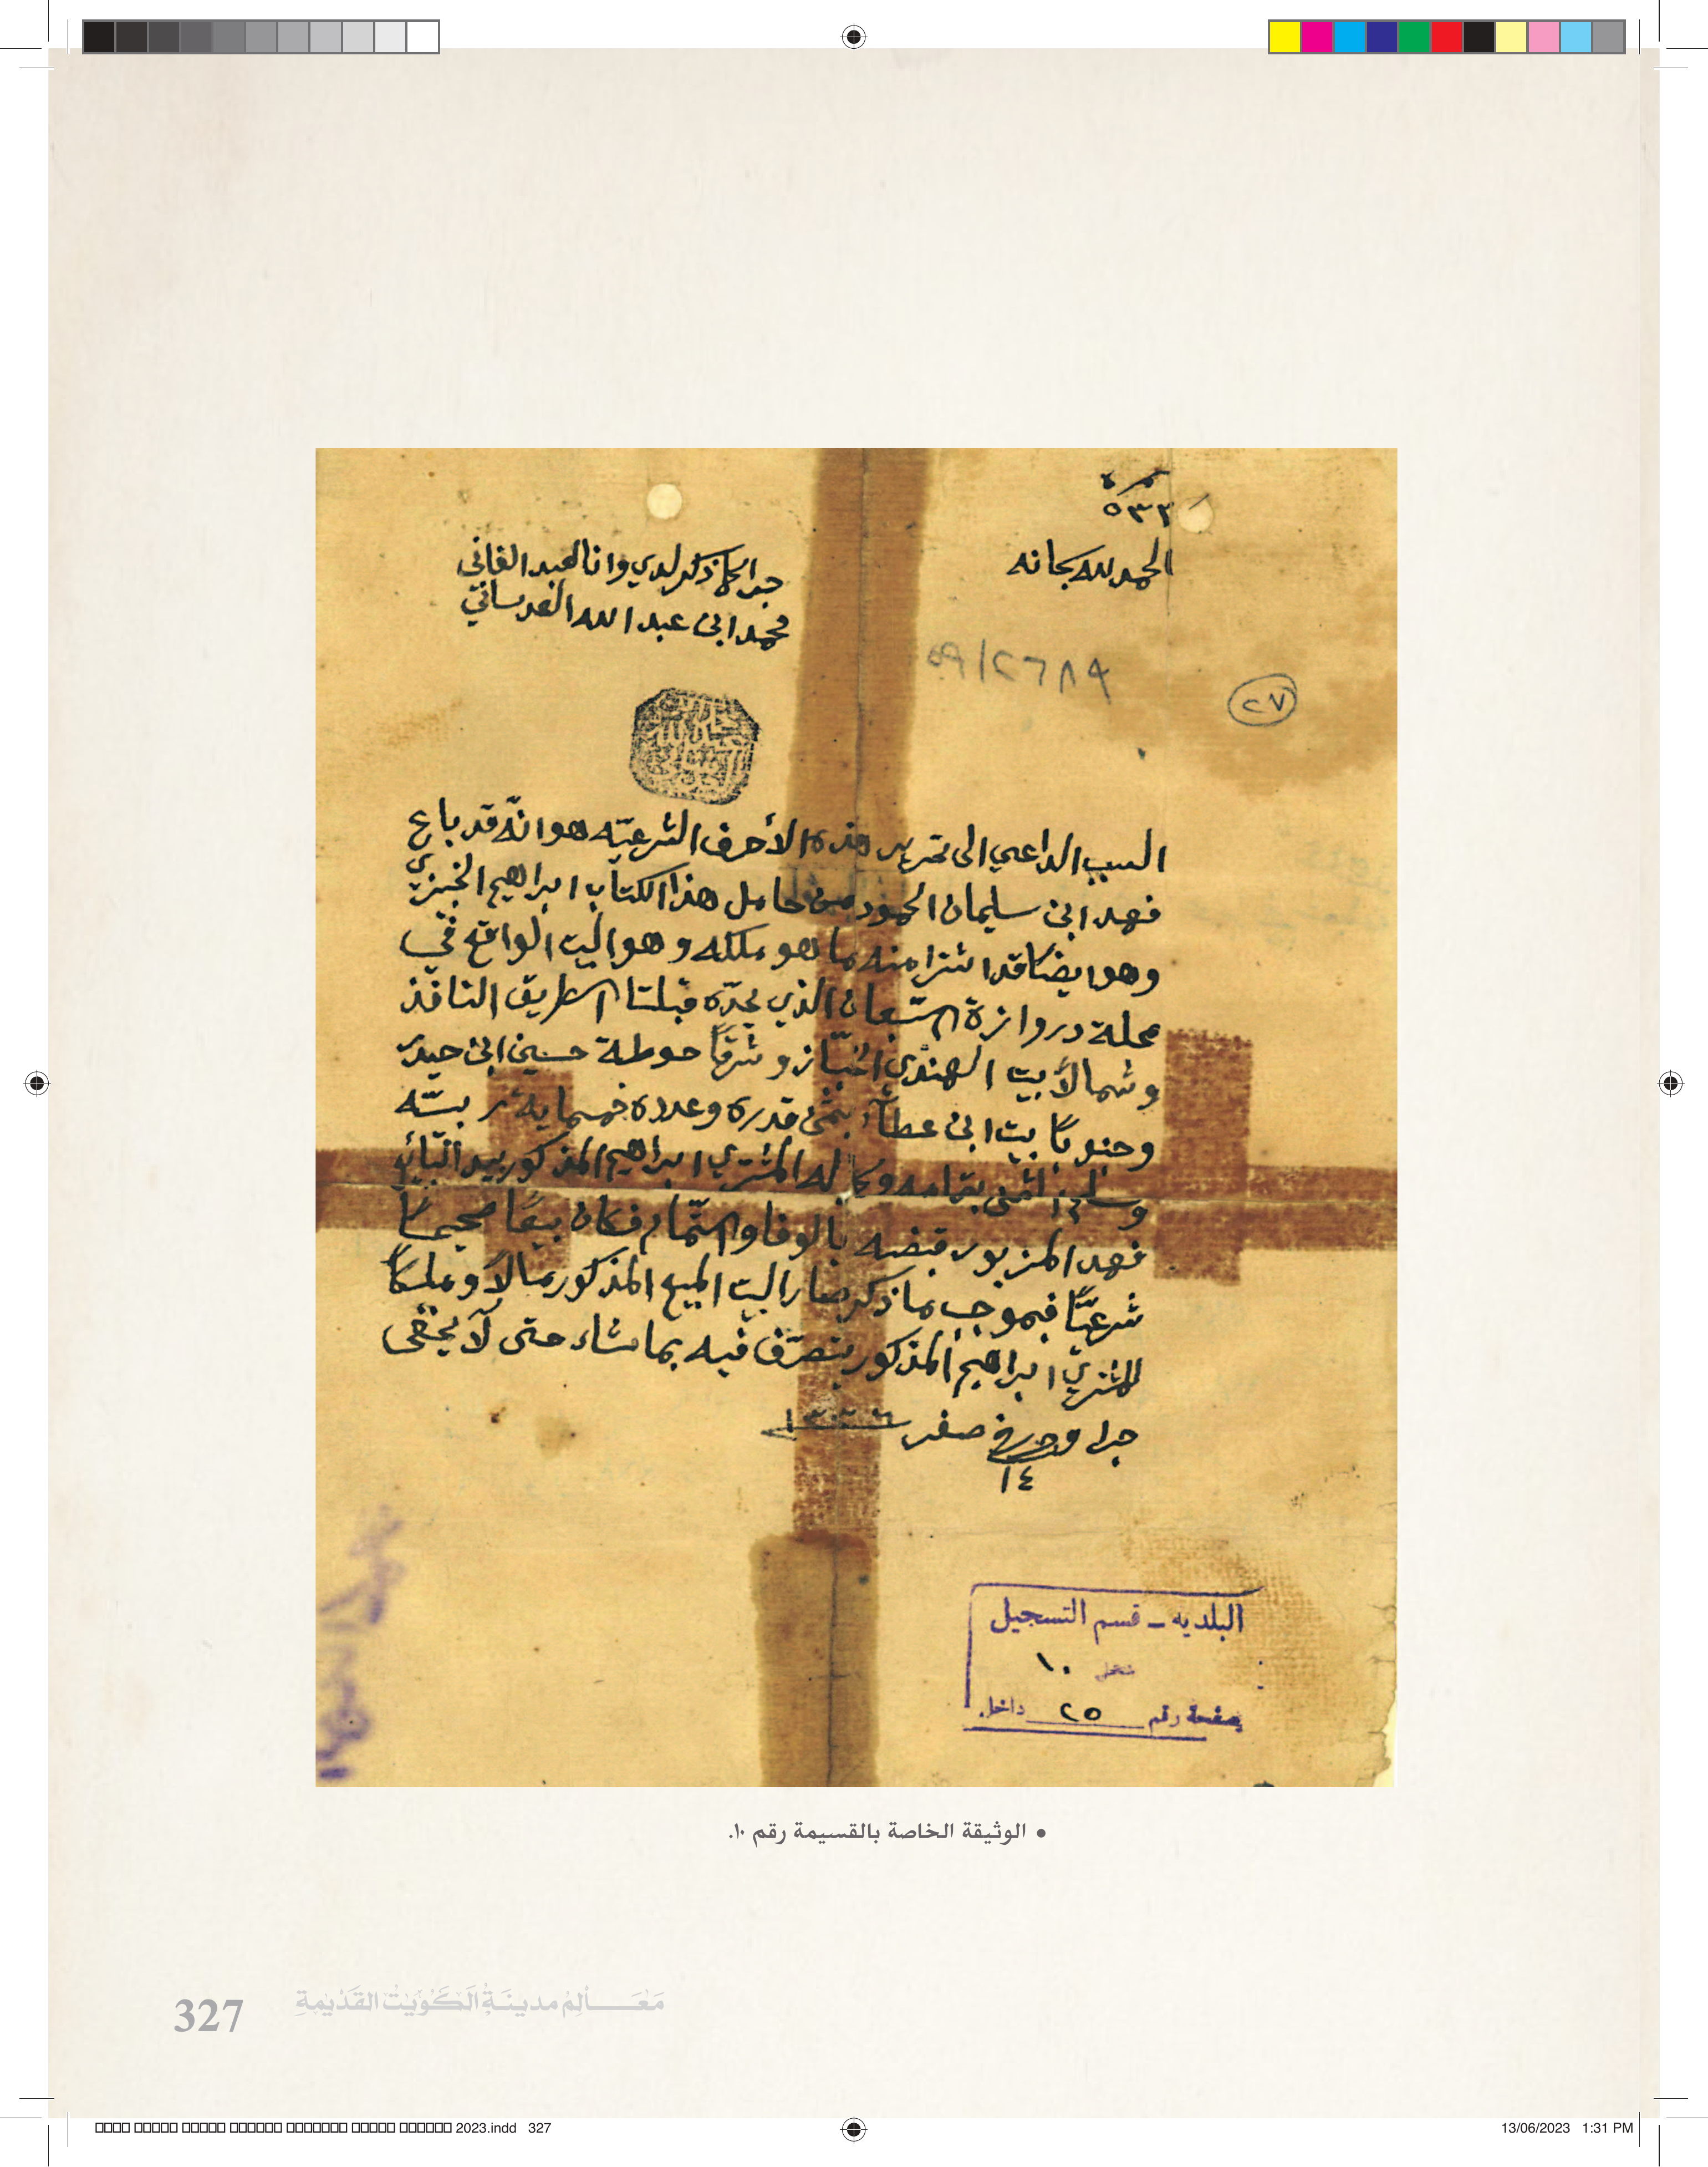 نمرة
٥٣٢
الحمد لله سبحانه
جرا كما ذكر لدي وانا العبد الفاني
محمد ابن عبد الله العدساني
٥٩/٢٦٨٩
٢٧
السبب الداعي الى تحرير هذه الأحرف الشرعيّه هو انّه قد باع
فهد ابن سليمان الحمود من حامل هذا الكتاب ابراهيم الخبيزي
وهو ايضًا قد اشترا منه ما هو ملكه وهو البيت الواقع في
محلة دروازة الشعبان الذي يحدّه قبلتا الطريق النافذ
وشمالاً بيت الهندي الخبّاز وشرقًا حوطة حسين ابن حيدر
وجنوبًا بيت ابن عطآء بثمن قدره وعدده خمسماية ربيّه
وسلم الثمن بتمامه وكماله المشتري ابراهيم المذكور بيد البّائع
فهد المزبور قبضه بالوفا والتّمام فكان بيعًا صحيحًا
شرعيًّا فبموجب ما ذكر صار البيت المبيع المذكور مالاً وملكًا
للمشتري ابراهيم المذكور يتصرّف فيه بما شاء حتى لا يخفى
جرا وحرر في صفر
١٤
البلديه – قسم التسجيل
١٠
صفحة رقم ٢٥ داخل
• الوثيقة الخاصة بالقسيمة رقم ١٠.
327 مَعَالِمُ مدينَةِ الكُوَيْت القَدْيمةِ
2023.indd 327
13/06/2023 1:31 PM